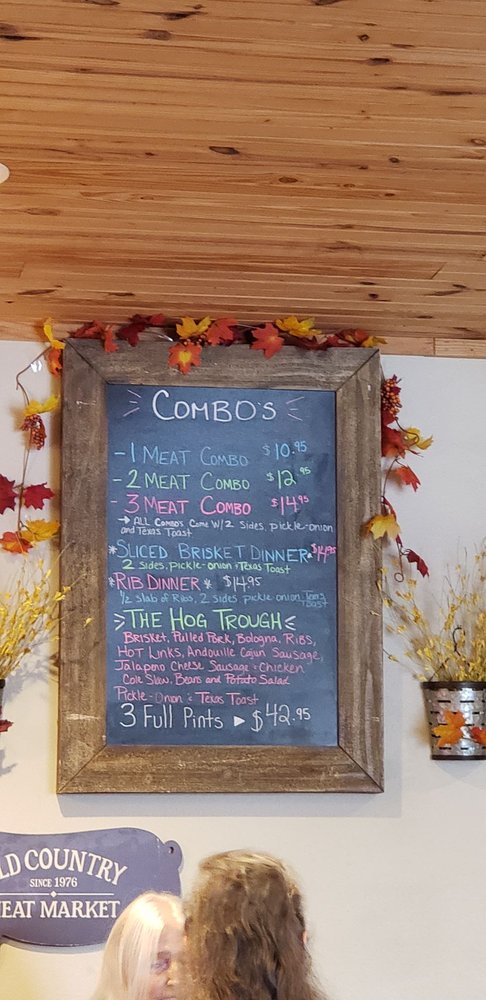 COMBO'S
- 1 MEAT COMBO $10.95
- 2 MEAT COMBO $12.95
- 3 MEAT COMBO $14.95
→ ALL COMBO'S COME W/2 Sides, pickle-onion
and Texas Toast
*SLICED BRISKET DINNER* $14.95
2 sides, pickle-onion & Texas Toast
*RIB DINNER* $14.95
1/2 slab of Ribs, 2 sides pickle onion Texas
Toast
THE HOG TROUGH
BRISKET, Pulled PORK, Bologna, RIBS,
HOT LINKS, ANDOUILLE CAJUN SAUSAGE,
Jalapeno CHEESE SAUSAGE & CHICKEN
COLE SLAW, BEANS AND POTATO SALAD
Pickle-Onion & Texas Toast
3 Full Pints ► $42.95
LD COUNTRY
SINCE 1976
EAT MARKET